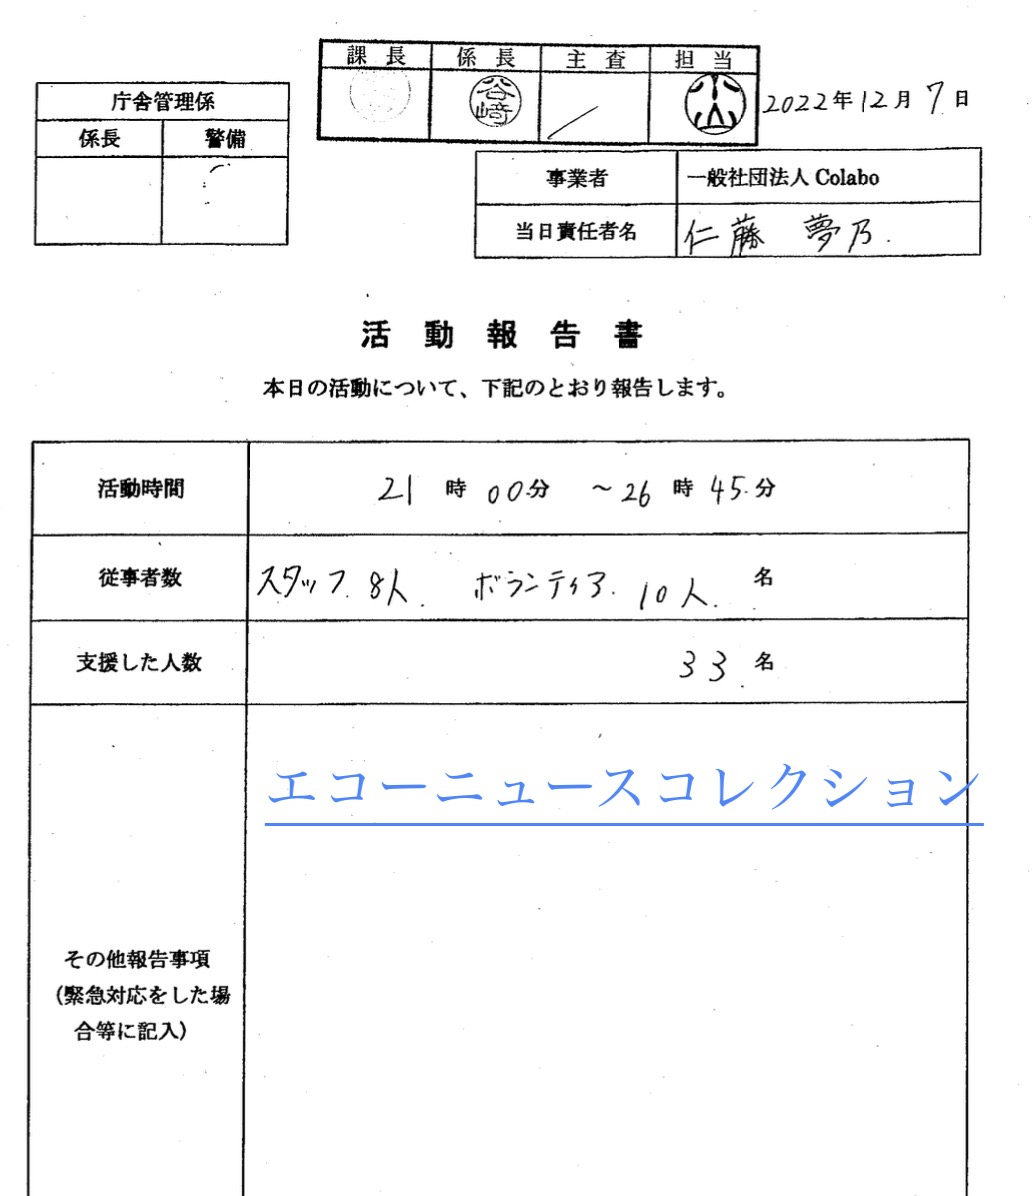 課長 係長 主査 担当
谷崎 小山
2022年12月7日
庁舎管理係
係長 警備
事業者 一般社団法人 Colabo
当日責任者名 仁藤 夢乃.
活動報告書
本日の活動について、下記のとおり報告します。
活動時間 21時00分 ～26時45分
従事者数 スタッフ 8人 ボランティア 10人 名
支援した人数 33名
エコーニュースコレクション
その他報告事項
(緊急対応をした場
合等に記入)